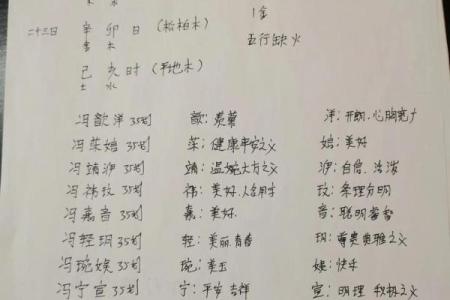 1金
二十三日 辛 卯 日 (松柏木)
金 木
五行缺火
己 亥 时 (平地木)
土 水
冯歆洋 35划 歆: 羡慕 洋: 开朗,心胸宽广
冯茱婄 35划 茱: 健康平安之义 婄: 美好
冯靖 35划 靖: 温婉大方之义 自信、活泼
冯祎玟 35划 祎: 美好,人名用字 玟: 条理分明
冯嘉音 35划 嘉: 美好 音: 聪明睿智
冯轻玥 35划 轻: 美丽,青春 玥: 尊贵典雅之义
冯琬 35划 琬: 美玉 快乐
冯宁宣 35划 宁: 平安 吉祥 宣: 明理 积极之义